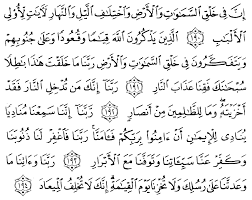 إِنَّ فِى خَلْقِ ٱلسَّمَٰوَٰتِ وَٱلْأَرْضِ وَٱخْتِلَٰفِ ٱلَّيْلِ وَٱلنَّهَارِ لَءَايَٰتٍ لِّأُو۟لِى
ٱلْأَلْبَٰبِ ﴿١٩٠﴾ ٱلَّذِينَ يَذْكُرُونَ ٱللَّهَ قِيَٰمًا وَقُعُودًا وَعَلَىٰ جُنُوبِهِمْ
وَيَتَفَكَّرُونَ فِى خَلْقِ ٱلسَّمَٰوَٰتِ وَٱلْأَرْضِ رَبَّنَا مَا خَلَقْتَ هَٰذَا بَٰطِلًا
سُبْحَٰنَكَ فَقِنَا عَذَابَ ٱلنَّارِ ﴿١٩١﴾ رَبَّنَآ إِنَّكَ مَن تُدْخِلِ ٱلنَّارَ فَقَدْ
أَخْزَيْتَهُۥ وَمَا لِلظَّٰلِمِينَ مِنْ أَنصَارٍ ﴿١٩٢﴾ رَّبَّنَآ إِنَّنَا سَمِعْنَا مُنَادِيًا
يُنَادِى لِلْإِيمَٰنِ أَنْ ءَامِنُوا۟ بِرَبِّكُمْ فَـَٔامَنَّا رَبَّنَا فَٱغْفِرْ لَنَا ذُنُوبَنَا
وَكَفِّرْ عَنَّا سَيِّـَٔاتِنَا وَتَوَفَّنَا مَعَ ٱلْأَبْرَارِ ﴿١٩٣﴾ رَبَّنَا وَءَاتِنَا مَا
وَعَدتَّنَا عَلَىٰ رُسُلِكَ وَلَا تُخْزِنَا يَوْمَ ٱلْقِيَٰمَةِ إِنَّكَ لَا تُخْلِفُ ٱلْمِيعَادَ ﴿١٩٤﴾